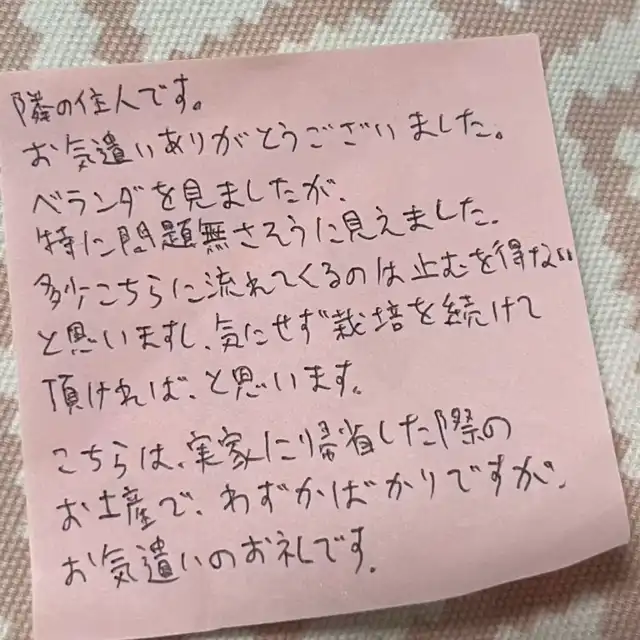 隣の住人です。
お気遣いありがとうございました。
ベランダを見ましたが、
特に問題無さそうに見えました。
多少こちらに流れてくるのは止むを得ない
と思いますし、気にせず栽培を続けて
頂ければ、と思います。
こちらは、実家に帰省した際の
お土産で、わずかばかりですが、
お気遣いのお礼です。